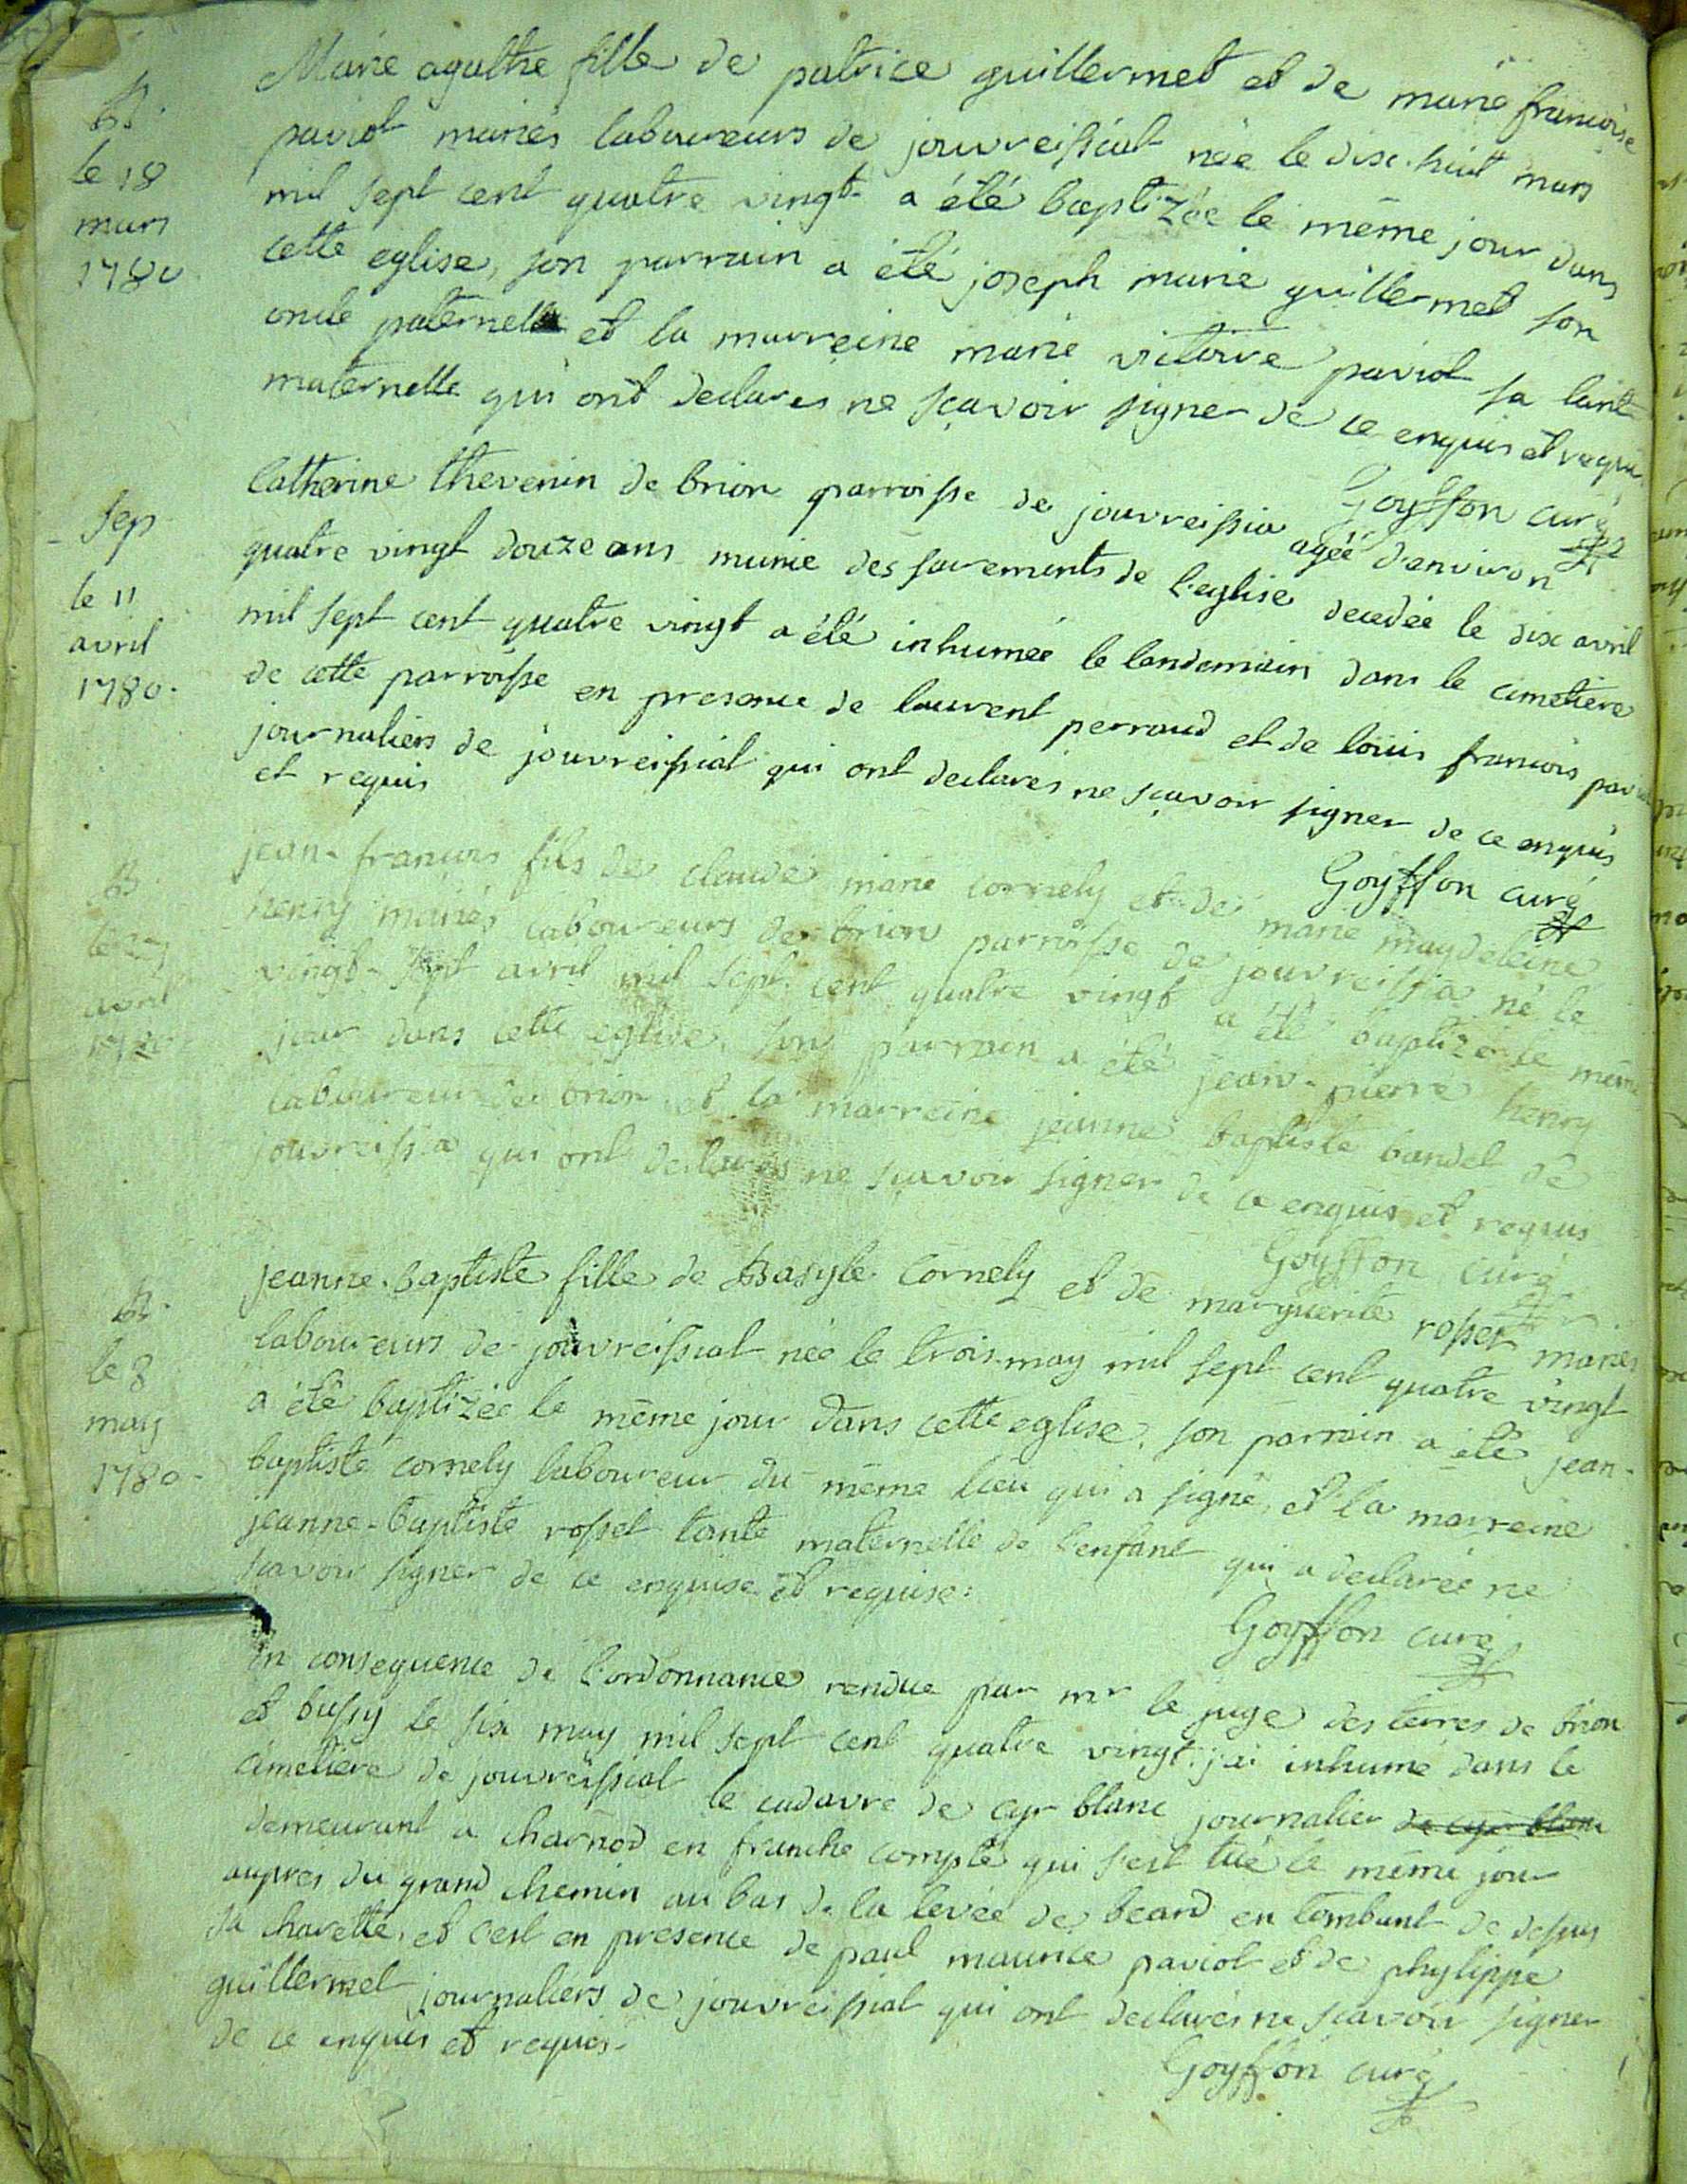 B.
le 18
mars
1780
Marie agathe fille de patrice guillermet et de marie françoise
paviot mariés laboureurs de jouvreissiat née le dix-huit mars
mil sept cent quatre vingt a été baptizée le même jour dans
cette eglise, son parrain a été joseph marie guillermet son
oncle paternel et la marreine marie victoire paviot sa tante
maternelle qui ont declarés ne sçavoir signer de ce enquis et requis
Goyffon curé
Sep
le 11
avril
1780.
Catherine thevenin de brion parroisse de jouvreissia agée d'environ
quatre vingt douze ans munie des sacrements de l'eglise decedée le dix avril
mil sept cent quatre vingt a été inhumée le landemain dans le cimetiere
de cette parroisse en presence de laurent perraud et de louis françois
journaliers de jouvreissiat qui ont declarés ne sçavoir signer de ce enquis
et requis
Goyffon curé
B
le 27
avril
1780.
jean-françois fils de claude marie cornely et de marie magdeleine
henry mariés laboureurs de brion parroisse de jouvreissia né le
vingt-sept avril mil sept cent quatre vingt a été baptizé le même
jour dans cette eglise, son parrain a été jean-pierre henry
laboureur de brion et la marreine jeanne baptiste bandet de
jouvreissia qui ont declarés ne sçavoir signer de ce enquis et requis
Goyffon curé
B.
le 8
may
1780-
jeanne-baptiste fille de Basyle Cornely et de marguerite rosset mariés
laboureurs de jouvreissiat née le trois may mil sept cent quatre vingt
a été baptizée le même jour dans cette eglise, son parrain a été jean-
baptiste cornely laboureur du même lieu qui a signé, et la marreine
jeanne-baptiste rosset tante maternelle de l'enfant qui a declarée ne
sçavoir signer de ce enquise et requise:
Goyffon curé
En consequence de l'ordonnance rendue par mr le juge des terres de brion
et bussy le six may mil sept cent quatre vingt j'ai inhumé dans le
cimetiere de jouvreissiat le cadavre de cyr blanc journalier de cyr blanc
demeurant a charnod en franche compté qui s'est tué le même jour
aupres du grand chemin au bas de la levée de beard en tombant de dessus
sa charette, et c'est en presence de paul maurice paviot et de phylippe
guillermet journaliers de jouvreissiat qui ont declarés ne sçavoir signer
de ce enquis et requis-
Goyffon curé